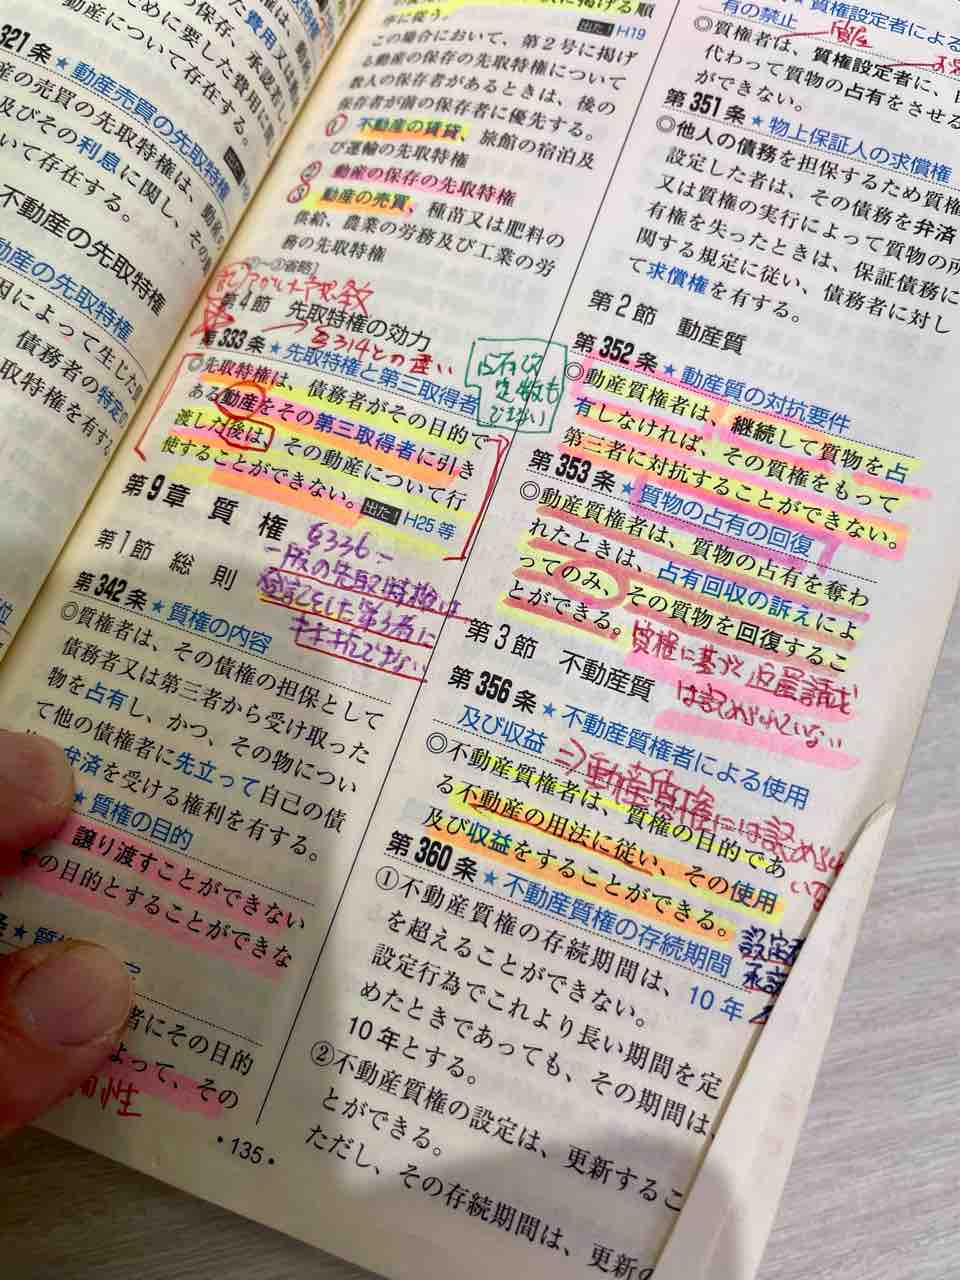 費用又は
めに要した費用に関し、
動産について存在する。
321条 ★動産売買の先取特権
産の売買の先取特権は、動産
及びその利息に関し、その動
いて存在する。
不動産の先取特権
動産の先取特権
因によって生じた
債務者の特定の
取特権を有する
に掲げる順
序に従う。
出た！H19
この場合において、第２号に掲げ
る動産の保存の先取特権について
数人の保存者があるときは、後の
保存者が前の保存者に優先する。
① 不動産の賃貸、旅館の宿泊及
び運輸の先取特権
② 動産の保存の先取特権
③ 動産の売買、種苗又は肥料の
供給、農業の労務及び工業の労
務の先取特権
[②～③省略]
第4節 先取特権の効力
§314との違い
第333条 ★先取特権と第三取得者
◎先取特権は、債務者がその目的で
ある動産をその第三取得者に引き
渡した後は、その動産について行
使することができない。出た！H25等
占有改
定でも
第9章 質 権
§336
一般の先取特権は
登記をした第3者に
対抗できない
第1節 総 則
第342条 ★質権の内容
◎質権者は、その債権の担保として
債務者又は第三者から受け取った
物を占有し、かつ、その物につい
て他の債権者に先立って自己の債
弁済を受ける権利を有する。
★質権の目的
譲り渡すことができない
その目的とすることができな
者にその目的
よって、その
・135・
★質権設定者による
有の禁止
◎質権者は、質権設定者に、自
代わって質物の占有をさせる
ができない。
第351条 ★物上保証人の求償権
◎他人の債務を担保するため質権
設定した者は、その債務を弁済
又は質権の実行によって質物の所
有権を失ったときは、保証債務に
関する規定に従い、債務者に対し
て求償権を有する。
第2節 動産質
第352条 ★動産質の対抗要件
◎動産質権者は、継続して質物を占
有しなければ、その質権をもって
第三者に対抗することができない。
第353条 ★質物の占有の回復
◎動産質権者は、質物の占有を奪わ
れたときは、占有回収の訴えによ
ってのみ、その質物を回復するこ
とができる。
質権に基づく返還請求
は認められない
第3節 不動産質
第356条 ★不動産質権者による使用
及び収益
⇒動産質権には認められない
◎不動産質権者は、質権の目的であ
る不動産の用法に従い、その使用
及び収益をすることができる。
第360条 ★不動産質権の存続期間
①不動産質権の存続期間は、10年
を超えることができない。
設定行為でこれより長い期間を定
めたときであっても、その期間は、
10年とする。
②不動産質権の設定は、更新するこ
とができる。
ただし、その存続期間は、更新の